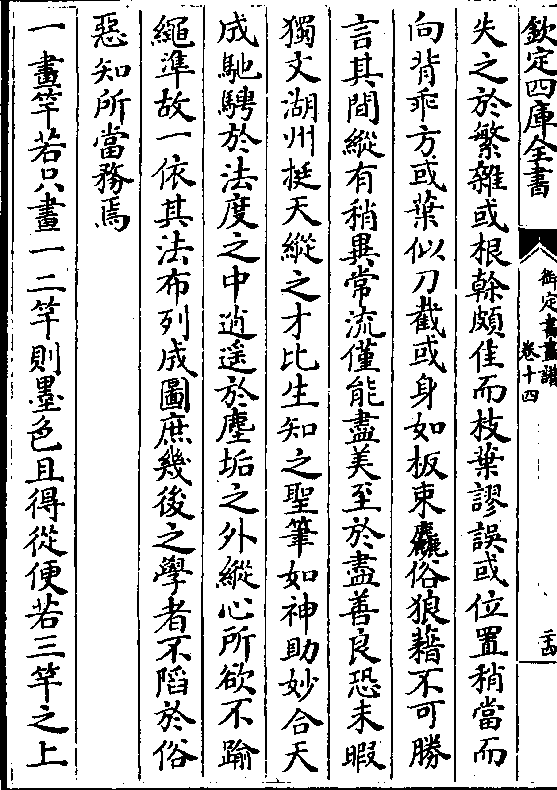 欽定四庫全書
御定書畫譜
卷十四
失之於繁雜或根榦頗佳而枝葉謬誤或位置稍當而
向背乖方或葉似刀截或身如板束麤俗狼藉不可勝
言其間縱有稍異常流僅能盡美至於盡善良恐未暇
獨文湖州挺天縱之才比生知之聖筆如神助妙合天
成馳騁於法度之中逍遥於塵垢之外縱心所欲不踰
繩準故一依其法布列成圖庶幾後之學者不陷於俗
惡知所當務焉
一畫竿若只畫一二竿則墨色且得從便若三竿之上